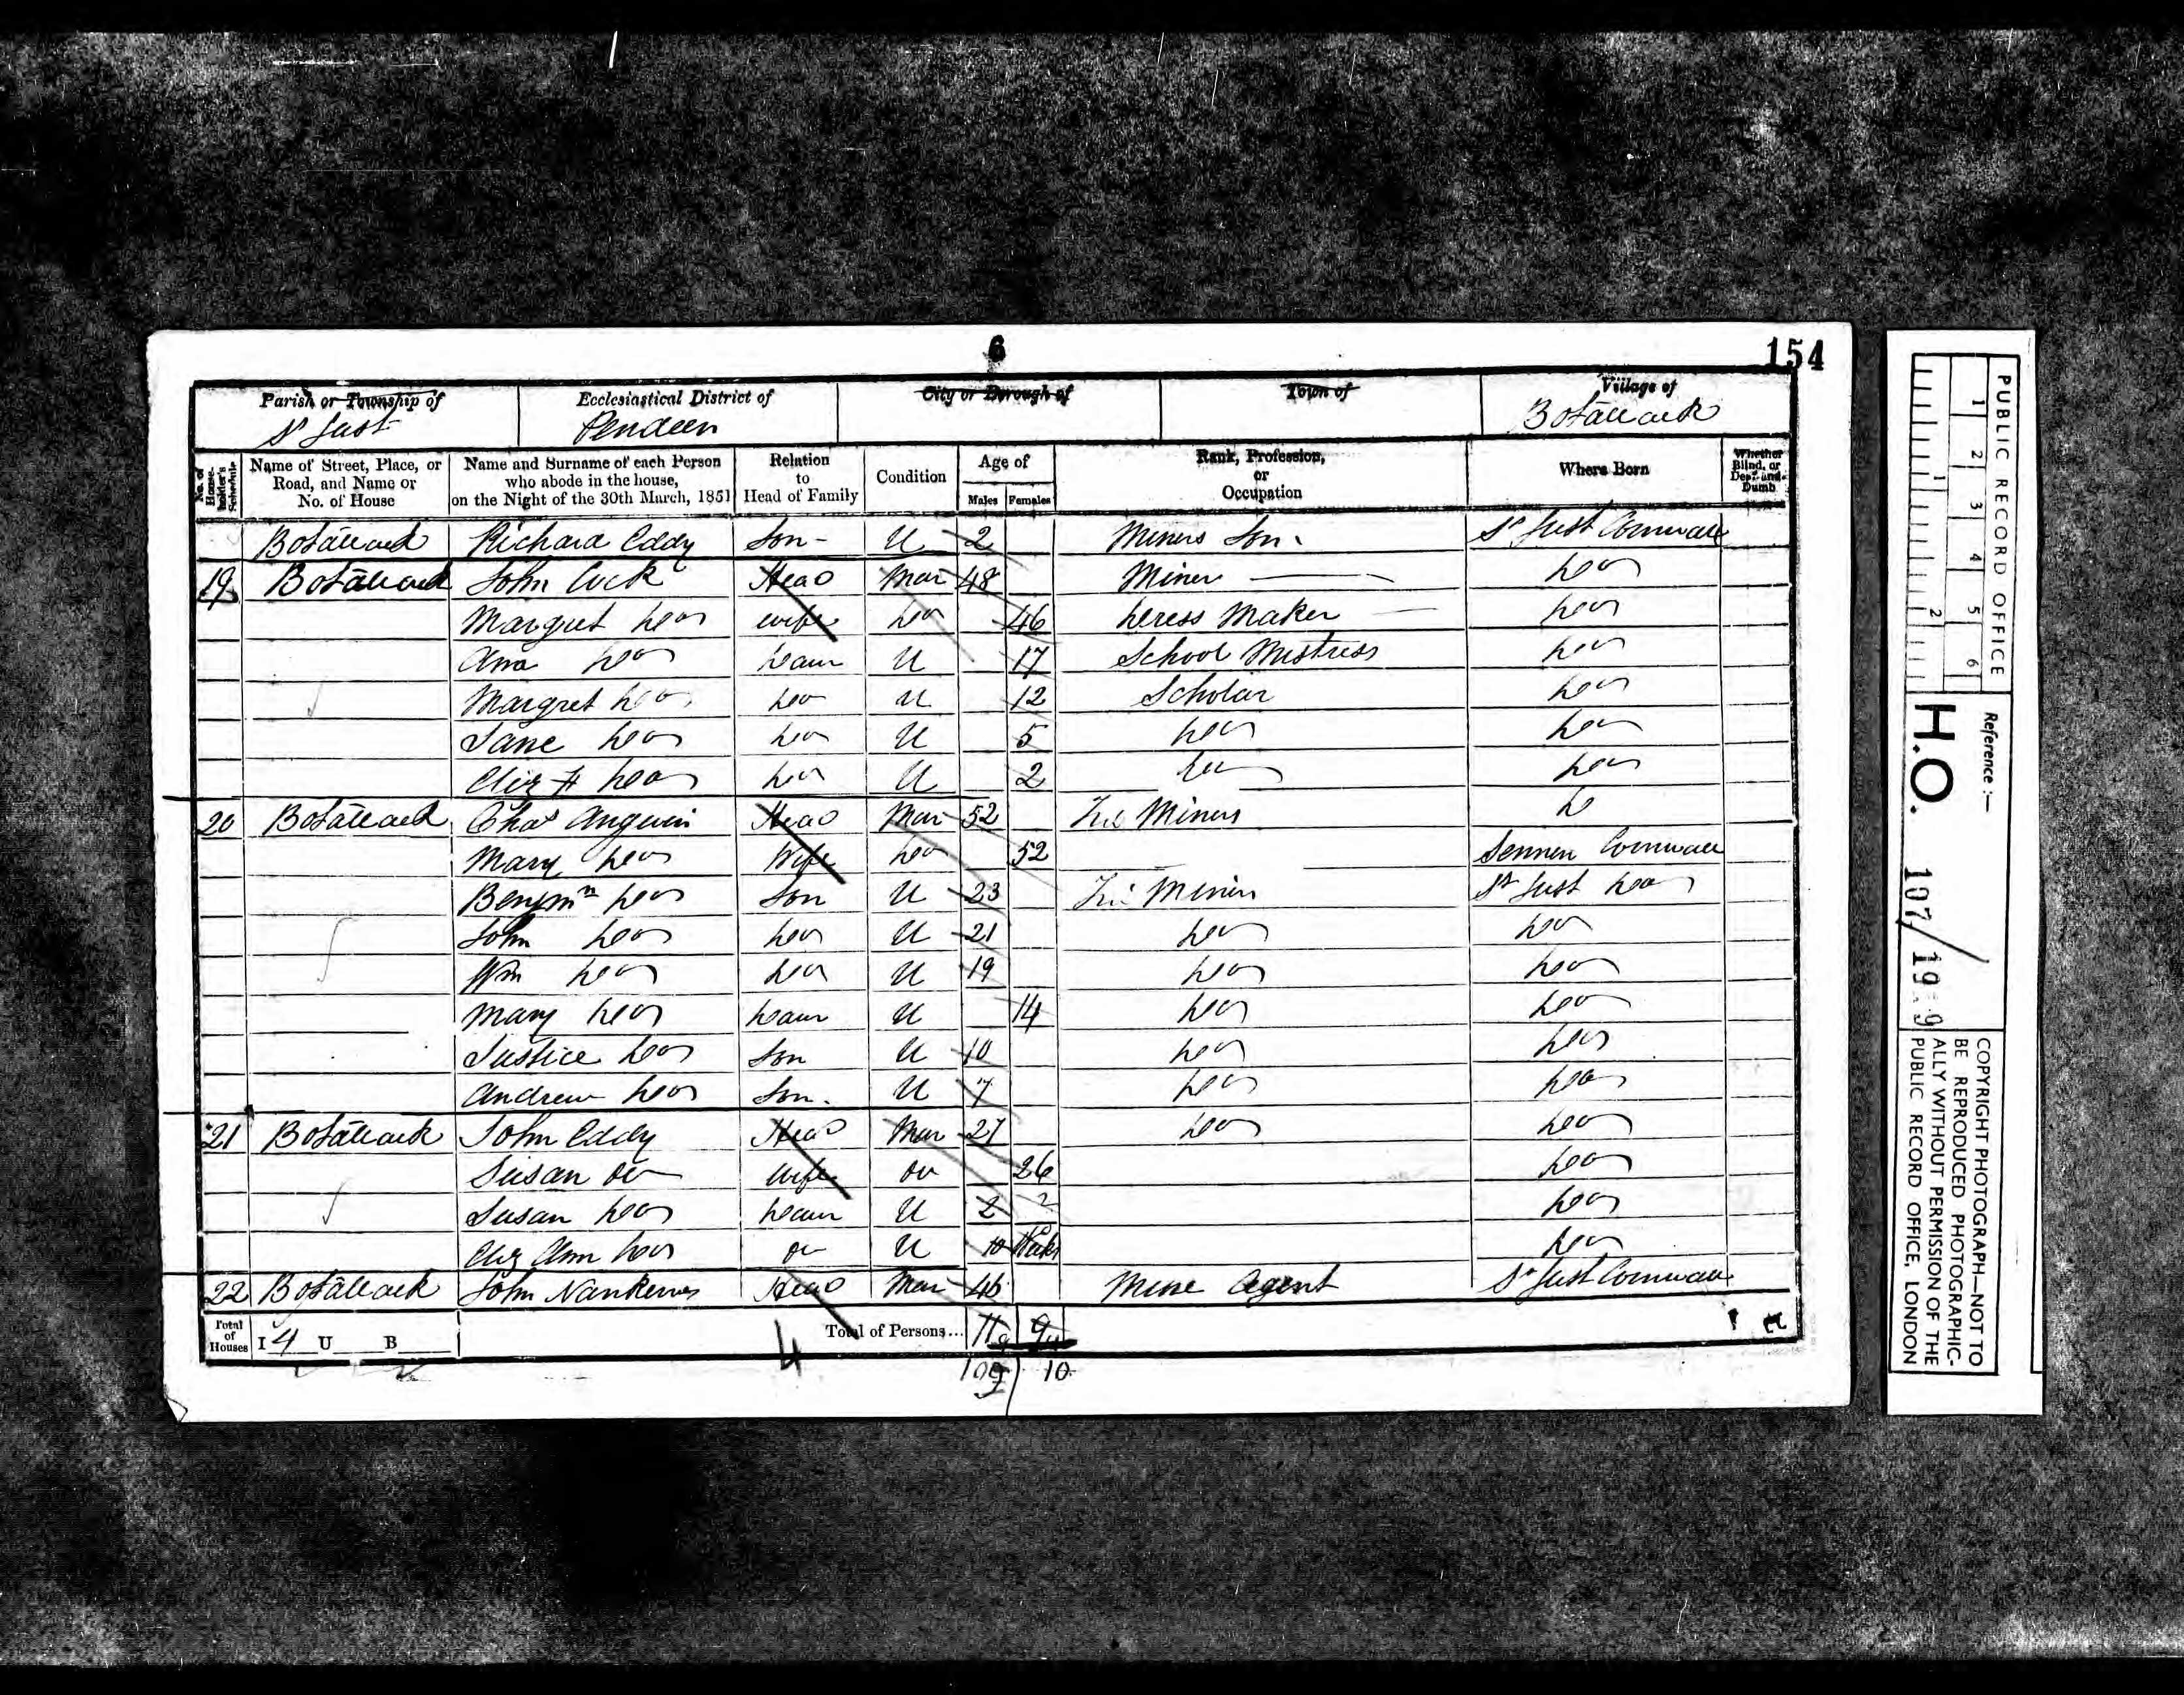 6
154
Parish or Township of
Ecclesiastical District of
City or Borough of
Town of
Village of
St Just
Pendeen
Botallack
No. of House-holder's Schedule
Name of Street, Place, or Road, and Name or No. of House
Name and Surname of each Person who abode in the house, on the Night of the 30th March, 1851
Relation to Head of Family
Condition
Age of
Males
Females
Rank, Profession, or Occupation
Where Born
Whether Blind, or Deaf-and-Dumb
Botallack Richard Eddy Son U 2 Miners Son St Just Cornwall
19 Botallack John Cock Head Mar 48 Miner Do
Margret Do Wife Do 46 Dress Maker Do
Ann Do Daur U 17 School Mistress Do
Margret Do Do U 12 Scholar Do
Jane Do Do U 5 Do Do
Eliz Do Do U 2 Do Do
20 Botallack Chas Angwin Head Mar 52 Tin Miner Do
Mary Do Wife Do 52 Sennen Cornwall
Benjmn Do Son U 23 Tin Miner St Just Do
John Do Do U 21 Do Do
Wm Do Do U 19 Do Do
Mary Do Daur U 14 Do Do
Justice Do Son U 10 Do Do
Andrew Do Son U 7 Do Do
21 Botallack John Eddy Head Mar 27 Do Do
Susan Do Wife Do 26 Do
Susan Do Daur U 2 2 Do
Eliz Ann Do Do U 10 Weeks Do
22 Botallack John Nankervis Head Mar 46 Mine Agent St Just Cornwall
Total of Houses I 4 U B
4
Total of Persons... 11 9
10
PUBLIC RECORD OFFICE
1 2 3 4 5 6
1 2
Reference :—
H.O. 107/19
COPYRIGHT PHOTOGRAPH—NOT TO BE REPRODUCED PHOTOGRAPHIC-ALLY WITHOUT PERMISSION OF THE PUBLIC RECORD OFFICE, LONDON